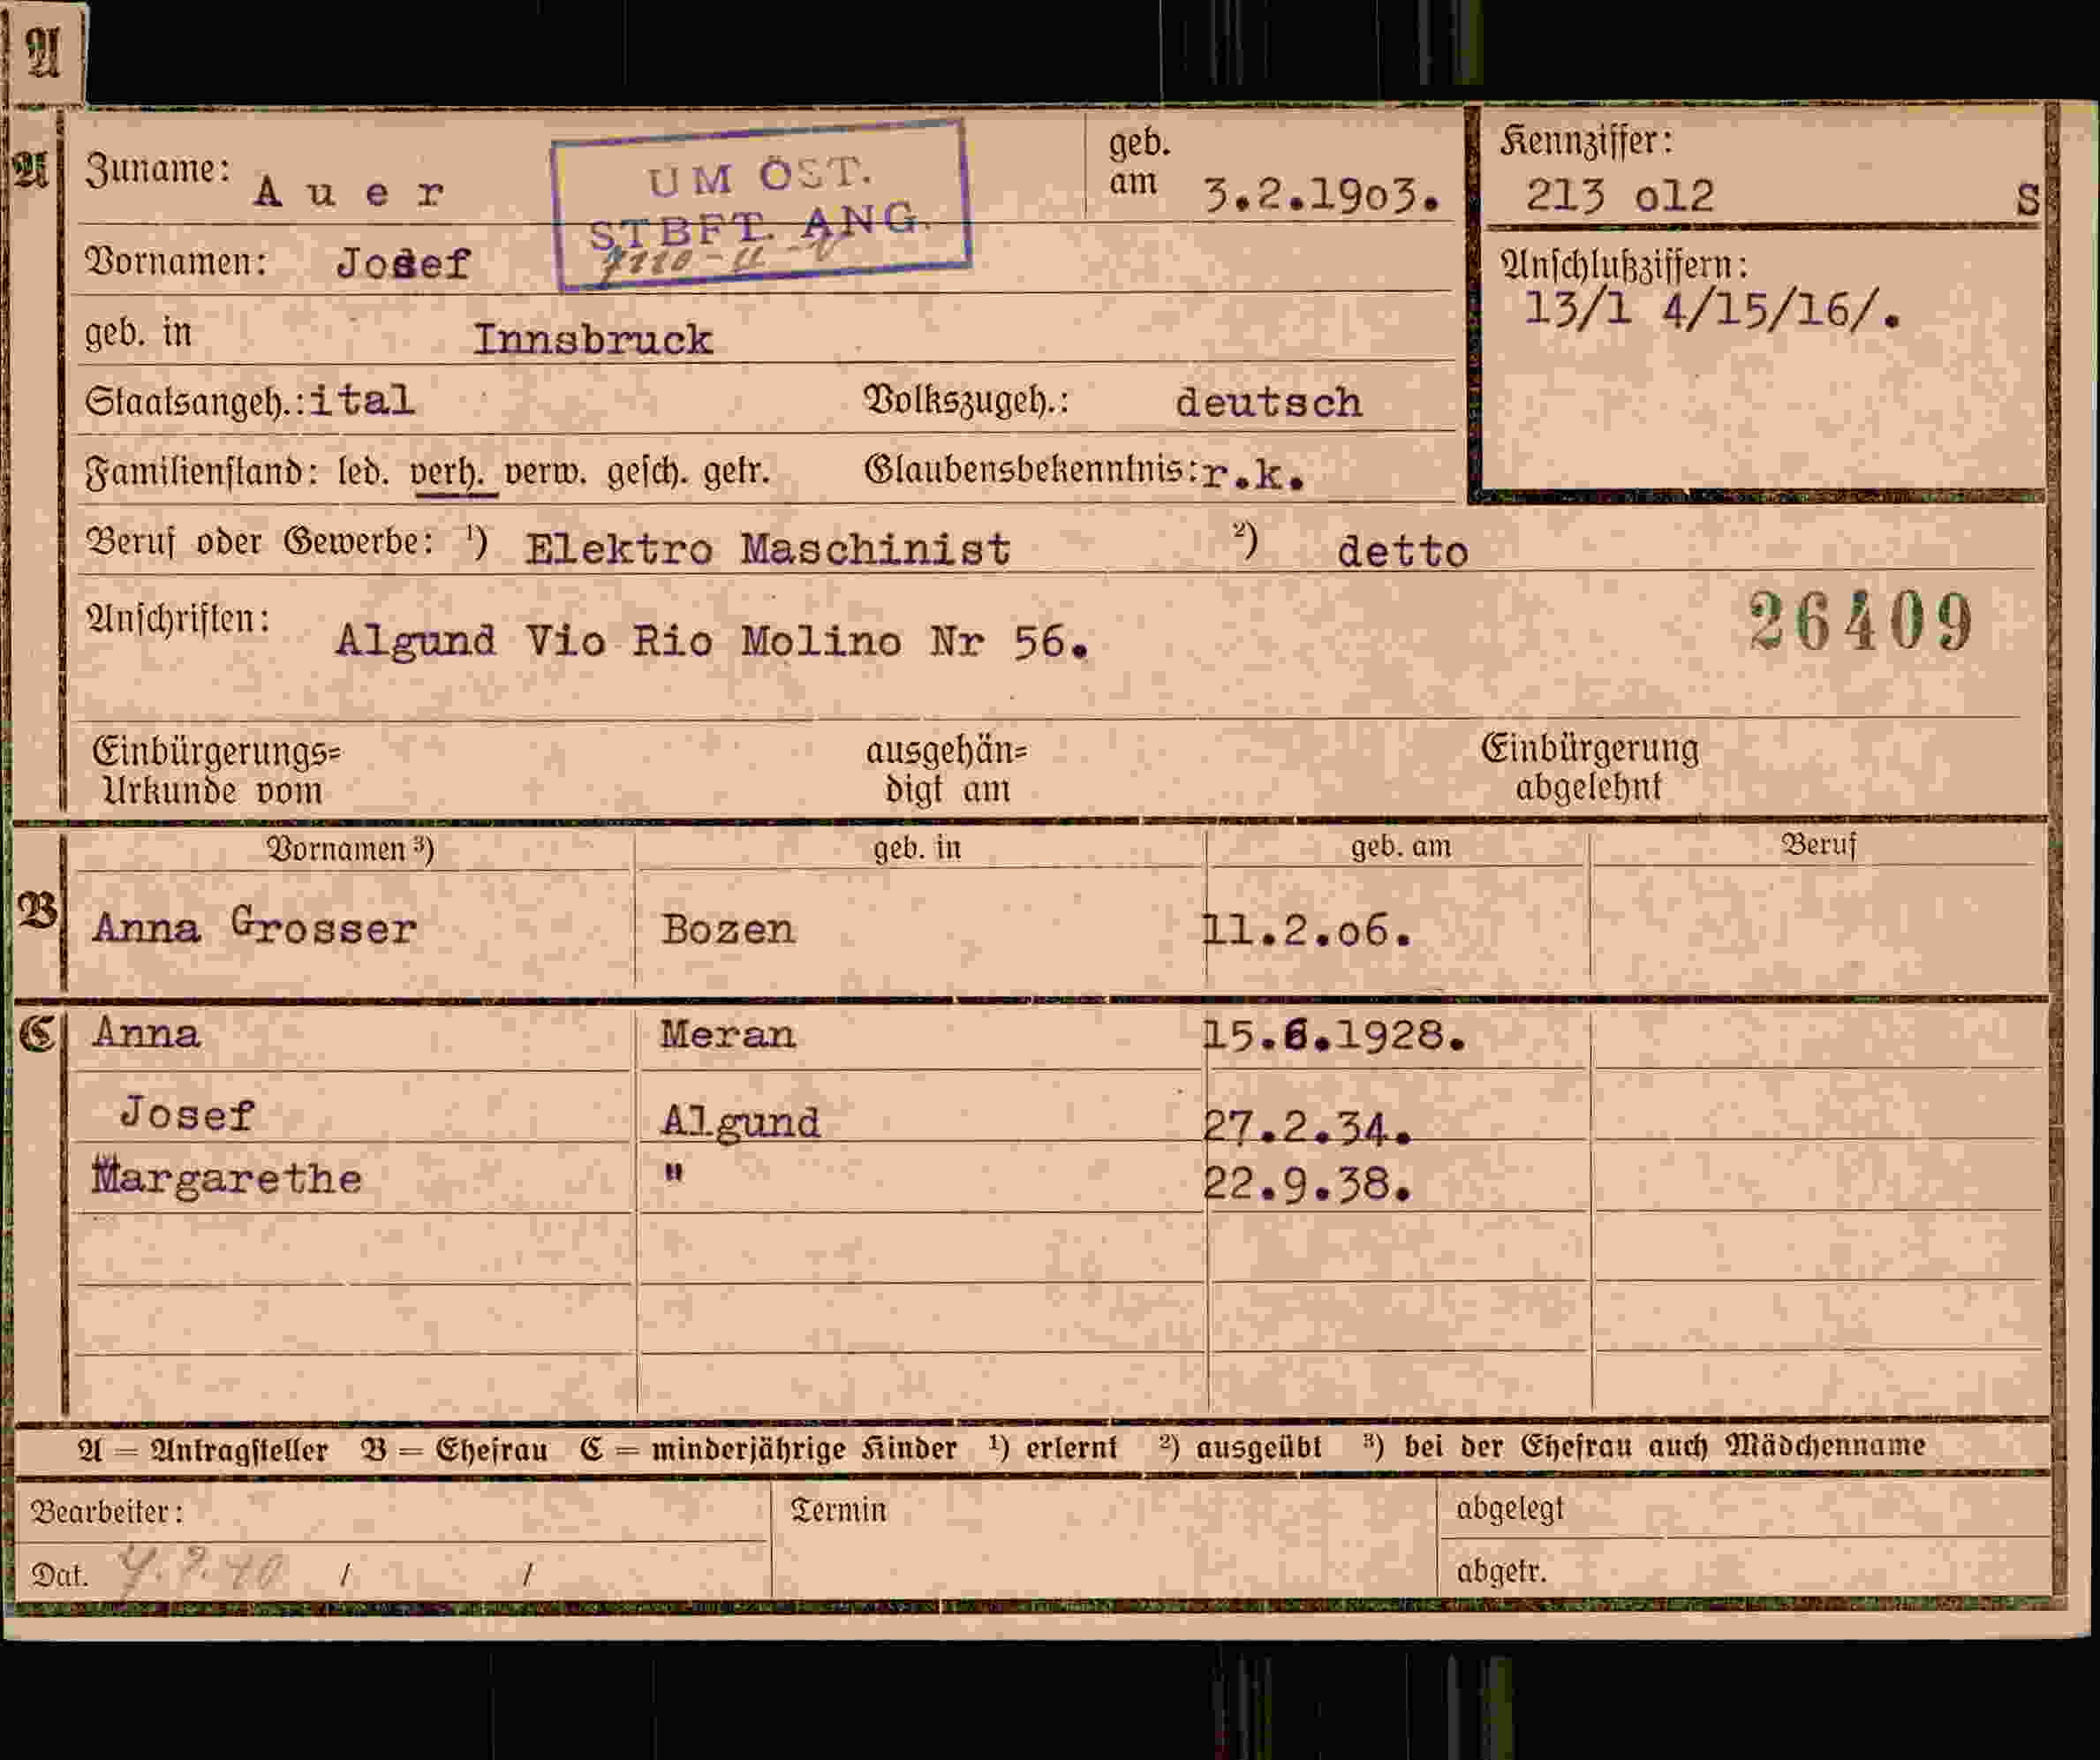 A
A
Zuname: Auer
UM ÖST.
STBFT. ANG.
geb. am 3.2.19o3.
Kennziffer:
213 o12 S
Vornamen: Josef
Anschlußziffern:
13/1 4/15/16/.
geb. in Innsbruck
Staatsangeh.: ital Volkszugeh.: deutsch
Familienstand: led. verh. verw. gesch. getr. Glaubensbekenntnis: r.k.
Beruf oder Gewerbe: ¹) Elektro Maschinist ²) detto
Anschriften: Algund Vio Rio Molino Nr 56.
26409
Einbürgerungs=
Urkunde vom
ausgehän=
digt am
Einbürgerung
abgelehnt
Vornamen ³) geb. in geb. am Beruf
B Anna Grosser Bozen 11.2.o6.
C Anna Meran 15.6.1928.
Josef Algund 27.2.34.
Margarethe " 22.9.38.
A = Antragsteller B = Ehefrau C = minderjährige Kinder ¹) erlernt ²) ausgeübt ³) bei der Ehefrau auch Mädchenname
Bearbeiter: Termin abgelegt
Dat. / / abgetr.